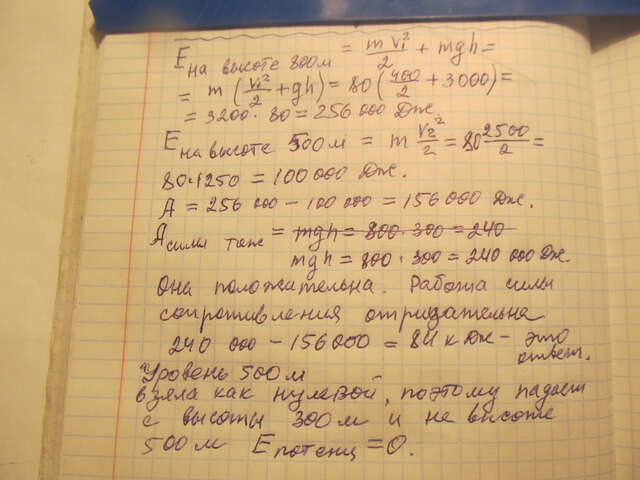 E на высоте 800м = mV₁²/2 + mgh =
= m (V₁²/2 + gh) = 80 (400/2 + 3000) =
= 3200 · 80 = 256 000 Дж.
E на высоте 500м = m V₂²/2 = 80 2500/2 =
80·1250 = 100 000 Дж.
A = 256 000 - 100 000 = 156 000 Дж.
A силы тяж = mgh = 800 · 300 = 240
mgh = 800 · 300 = 240 000 Дж.
Она положительна. Работа силы
сопротивления отрицательна
240 000 - 156000 = 84 кДж - это
ответ.
Уровень 500м
взяла как нулевой, поэтому падает
с высоты 300м и на высоте
500м E потенц = 0.